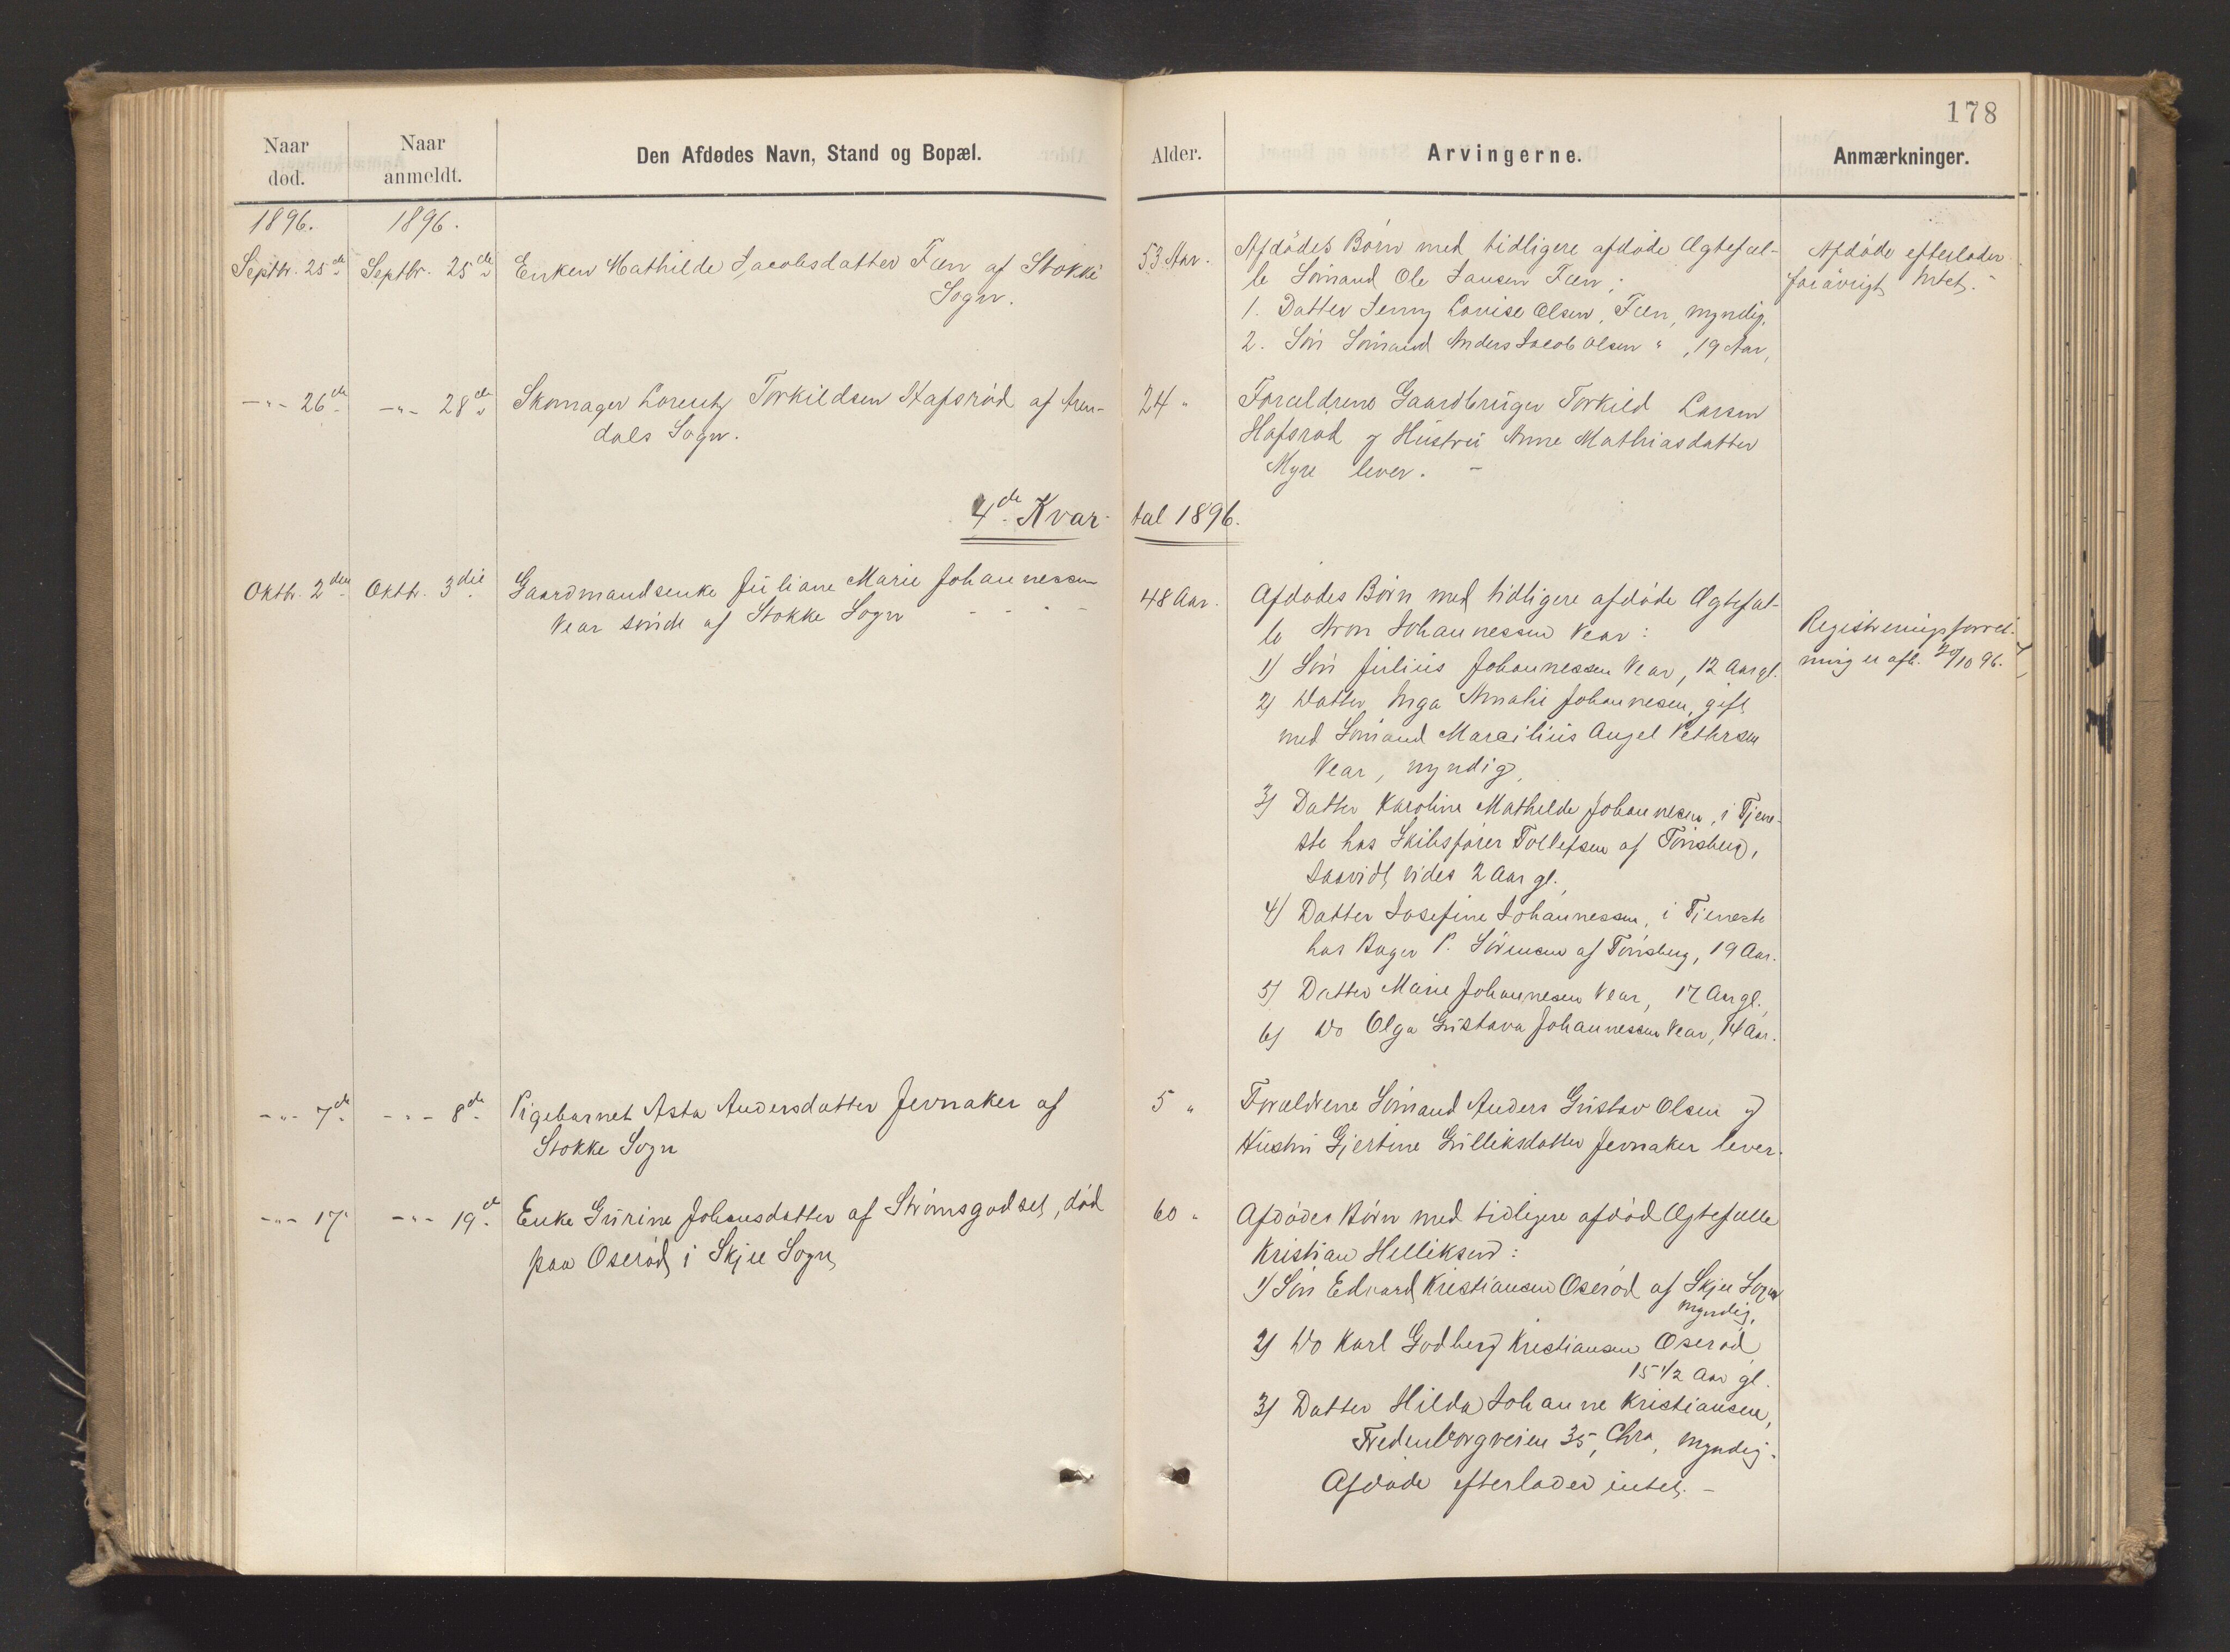 178
Naar død.
Naar anmeldt.
Den Afdødes Navn, Stand og Bopæl.
Alder.
Arvingerne.
Anmærkninger.
1896.
1896.
Septbr. 25de
Septbr. 25de
Enken Mathilde Jacobsdatter Fæn af Stokke
Sogn.
53 Aar.
Afdødes Børn med tidligere afdøde Ægtefæl-
le Sømand Ole Jansen Fæn;
1. Datter Jenny Lovise Olsen, Fæn, myndig,
2. Søn Sømand Anders Jacob Olsen " , 19 Aar,
Afdøde efterlader
forøvrigt Intet.-
-"- 26de
-"- 28de
Skomager Lorentz Torkildsen Hafsrød af Aren-
dals Sogn.
24 "
Forældrene Gaardbruger Torkild Larsen
Hafsrød og Hustru Anne Mathiasdatter
Myre lever. -
4de Kvar-
tal 1896.
Oktbr. 2den
Oktbr. 3die
Gaardmandsenke Juliane Marie Johannessen
Vear søndre af Stokke Sogn - - - -
48 Aar.
Afdødes Børn med tidligere afdøde Ægtefæl-
le Aron Johannessen Vear:
1) Søn Julius Johannessen Vear, 12 Aar gl.
2) Datter Inga Amalie Johannesen, gift
med Sømand Marcilius Angel Pettersen
Vear, myndig,
3) Datter Karoline Mathilde Johannesen, i Tjene-
ste hos Skibsfører Tollefsen af Tønsberg,
saavidt vides 2 Aar gl.,
4) Datter Josefine Johannessen, i Tjeneste
hos Bager P. Sørensen af Tønsberg, 19 Aar.
5) Datter Marie Johannesen Vear, 17 Aar gl.,
6) Do Olga Gustava Johannessen Vear, 14 Aar.
Registreringsforret-
ning er afh. 20/10 96.
-"- 7de
-"- 8de
Pigebarnet Asta Andersdatter Jernaker af
Stokke Sogn
5 "
Forældrene Sømand Anders Gustav Olsen og
Hustru Gjertine Gulliksdatter Jernaker lever.
-"- 17
-"- 19de
Enke Gurine Johansdatter af Strømsgodset, død
paa Oserød i Skjee Sogn
60 "
Afdødes Børn med tidligere afdød Ægtefælle
Kristian Helliksen:
1) Søn Edvard Kristiansen Oserød af Skjee Sogn
myndig,
2) Do Karl Godberg Kristiansen Oserød
15 1/2 Aar gl.
3) Datter Hilda Johanne Kristiansen,
Fredenborgveien 35, Chra, myndig.
Afdøde efterlader intet. -